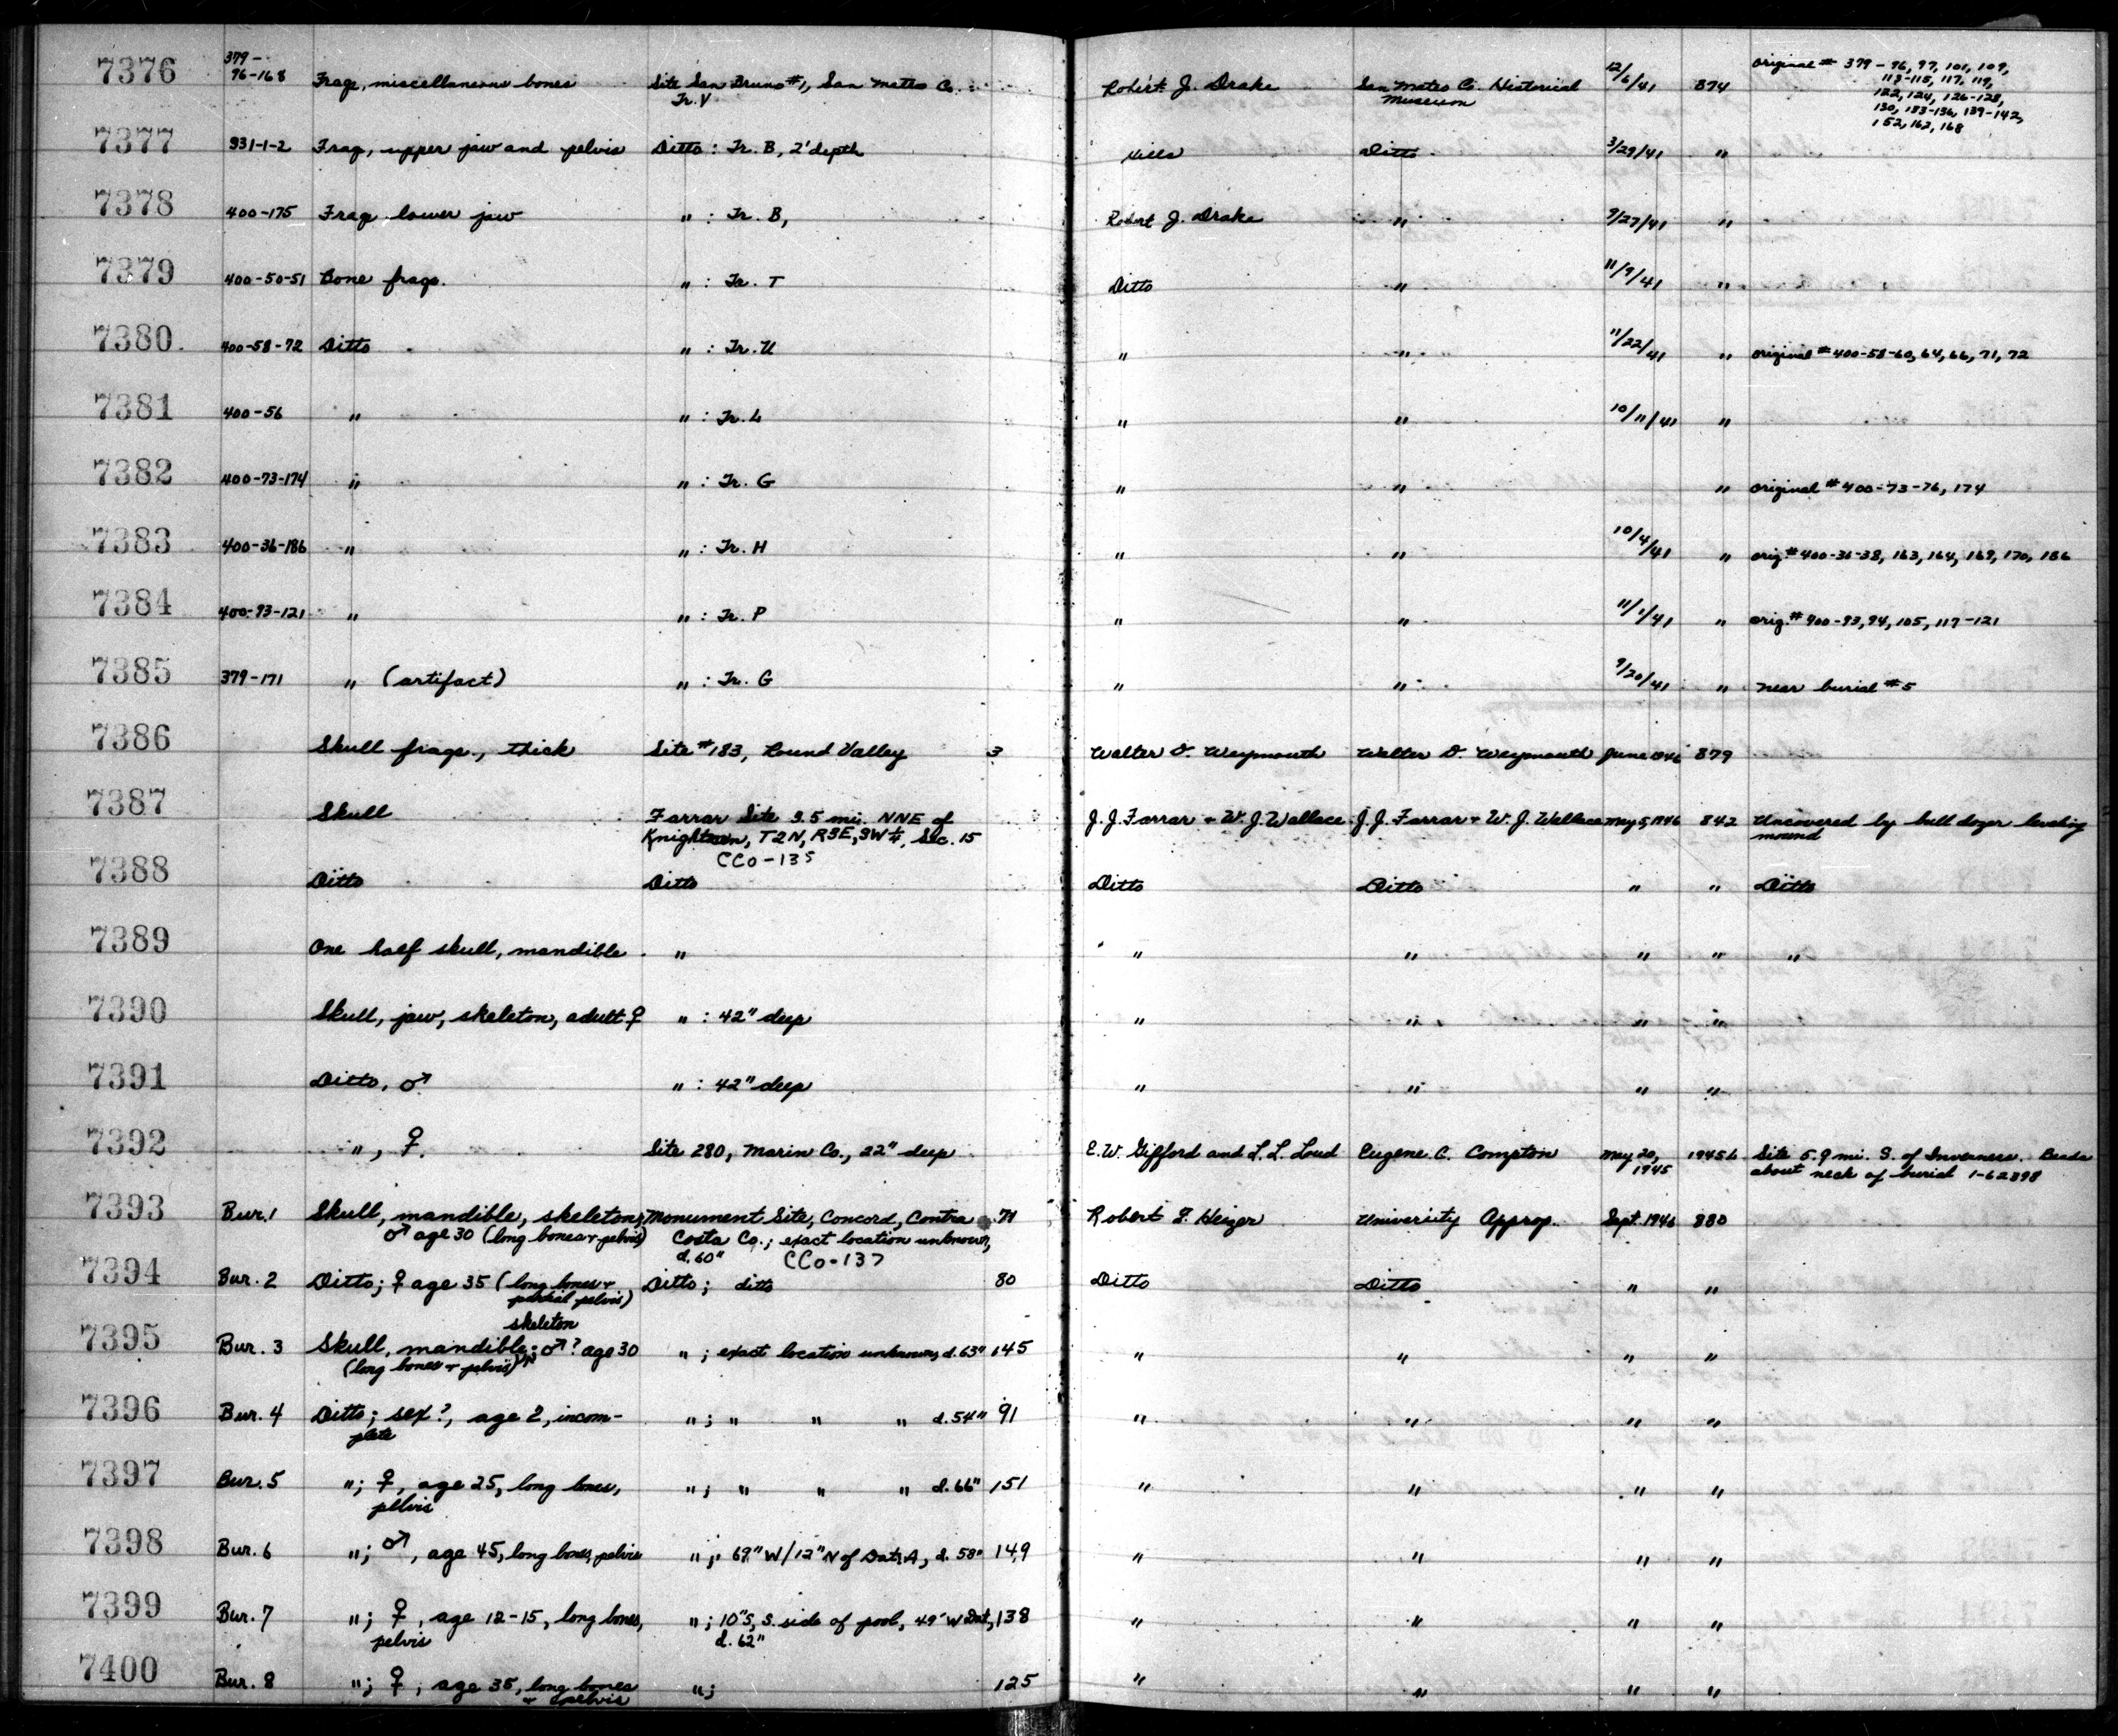 7376 379-96-168 Frags, miscellaneous bones Site San Bruno #1, San Mateo Co. Tr. V Robert J. Drake San Mateo Co. Historical Museum 12/6/41 874 Original # 379-96, 97, 101, 109,
113-115, 117, 119,
122, 124, 126-128,
130, 133-136, 139-142,
152, 162, 168
7377 931-1-2 Frag, upper jaw and pelvis Ditto: Tr. B, 2' depth Ditto 3/29/41 "
7378 400-175 Frag. lower jaw " : Tr. B, Robert J. Drake " 9/27/41 "
7379 400-50-51 Bone frags. " : Tr. T Ditto " 11/9/41 "
7380 400-58-72 Ditto " : Tr. U " " 11/22/41 " original # 400-58-60, 64, 66, 71, 72
7381 400-56 " " : Tr. L " " 10/11/41 "
7382 400-73-174 " " : Tr. G " " " original # 400-73-76, 174
7383 400-36-186 " " : Tr. H " " 10/4/41 " orig. # 400-36-38, 163, 164, 169, 170, 186
7384 400-93-121 " " : Tr. P " " 11/1/41 " orig. # 400-93, 94, 105, 117-121
7385 379-171 " (artifact) " : Tr. G " " 9/20/41 " near burial #5
7386 Skull frags., thick Site #183, Round Valley 3 Walter D. Weymouth Walter D. Weymouth June 1946 879
7387 Skull Farrar Site 3.5 mi. NNE of J. J. Farrar + W. J. Wallace J. J. Farrar + W. J. Wallace May 5, 1946 842 Uncovered by bull dozer leveling
Knightsen, T2N, R3E, SW¼, Sec. 15 mound
CCo-135
7388 Ditto Ditto Ditto Ditto " " Ditto
7389 One half skull, mandible " " " " " "
7390 Skull, jaw, skeleton, adult ♀ " : 42" deep " " " "
7391 Ditto, ♂ " : 42" deep " " " "
7392 ", ♀. Site 280, Marin Co., 22" deep E. W. Gifford and L. L. Loud Eugene C. Compton May 20, 1945 1945b Site 5.9 mi. S. of Inverness. Beads
about neck of burial 1-62898
7393 Bur. 1 Skull, mandible, skeleton; Monument Site, Concord, Contra 71 Robert F. Heizer University Approp. Sept. 1946 880
♂ age 30 (long bones + pelvis) Costa Co.; exact location unknown,
d. 60" CCo-137
7394 Bur. 2 Ditto; ♀ age 35 (long bones + Ditto; ditto 80 Ditto Ditto " "
partial pelvis)
skeleton
7395 Bur. 3 Skull, mandible; ♂? age 30 "; exact location unknown, d. 63" 145 " " " "
(long bones + pelvis)
7396 Bur. 4 Ditto; sex?, age 2, incom- "; " " " d. 54" 91 " " " "
plete
7397 Bur. 5 "; ♀, age 25, long bones, "; " " " d. 66" 151 " " " "
pelvis
7398 Bur. 6 "; ♂, age 45, long bones, pelvis "; 69" W/12" N of Dat. A, d. 58" 149 " " " "
7399 Bur. 7 "; ♀, age 12-15, long bones, "; 10" S, S. side of pool, 49' W Dat., 138 " " " "
pelvis d. 62"
7400 Bur. 8 "; ♀, age 35, long bones "; 125 " " " "
+ pelvis